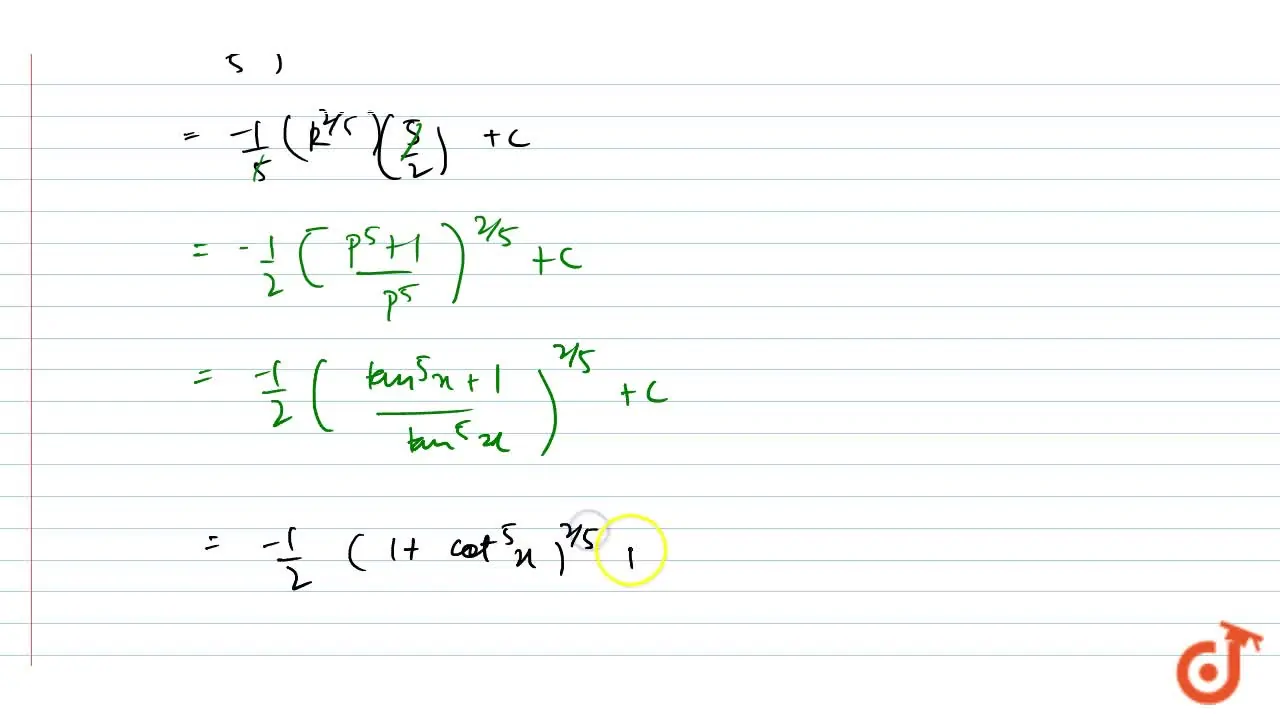 5 )
= -1/5 (k^{2/5}) (5/2) + C
= -1/2 ( (p^5 + 1) / p^5 )^{2/5} + C
= -1/2 ( (tan^5 x + 1) / tan^5 x )^{2/5} + C
= -1/2 ( 1 + cot^5 x )^{2/5} 1